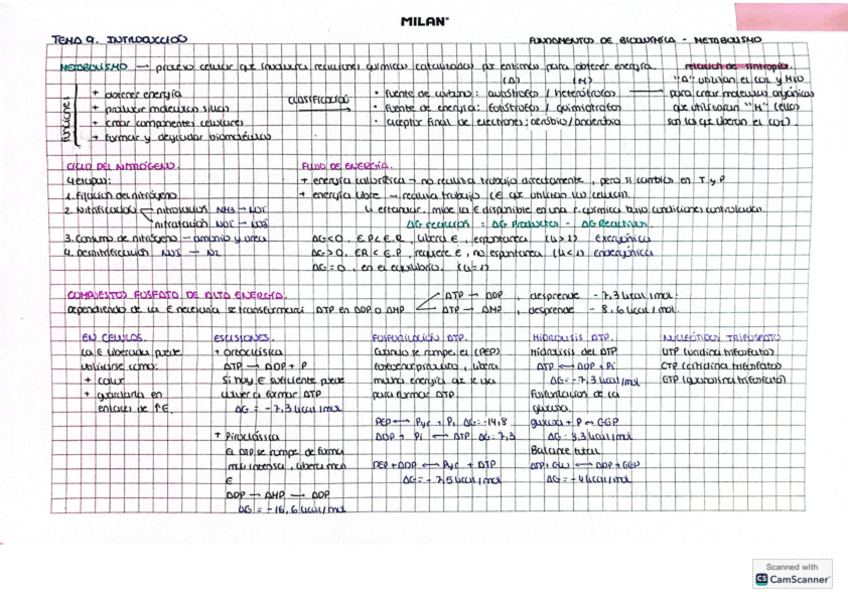 MILAN®
TEMA 9. INTRODUCCIÓN
FUNDAMENTOS DE BIOQUÍMICA - METABOLISMO
METABOLISMO → proceso celular que involucra reacciones químicas catalizadas por enzimas para obtener energía.
relación de sintropía.
funciones
+ obtener energía
+ producir moléculas
+ crear componentes celulares
+ formar y degradar biomoléculas
CLASIFICACIÓN
(A) (H)
• fuente de carbono: autótrofos / heterótrofos
• fuente de energía: fotótrofos / quimiótrofos
• aceptor final de electrones: aerobio / anaerobio
"A" utilizan el CO2 y H2O
para crear moléculas orgánicas
que utilizarán "H" (ellos
son los que liberan el CO2).
CICLO DEL NITRÓGENO.
4 etapas:
1. Fijación del nitrógeno
2. Nitrificación
nitrosación NH3 →
nitratación
3. Consumo de nitrógeno → amonio y urea
4. Desnitrificación → N2
FLUJO DE ENERGÍA.
+ energía calorífica → no realiza trabajo directamente, pero si cambios en T y P
+ energía libre → realiza trabajo (E que utilizan las células).
↳ estándar. mide la E disponible en una r. química bajo condiciones controladas.
ΔG reacción = ΔG Productos - ΔG Reactivos.
ΔG<0. EP<E.R, libera E, espontánea (K>1) exergónica
ΔG>0. ER<E.P, requiere E, no espontánea (K<1) endergónica
ΔG=0, en el equilibrio. (K=1)
COMPUESTOS FOSFATO DE ALTA ENERGÍA.
Dependiendo de la E necesaria se transformará ATP en ADP o AMP
ATP → ADP, desprende -7,3 kcal/mol.
ATP → AMP, desprende -8,6 kcal/mol.
EN CÉLULAS.
La E liberada puede
utilizarse como:
+ calor
+ guardarla en
enlaces de ↑E.
ESCISIONES.
+ Ortoclásica
ATP → ADP + P
Si hay E suficiente puede
volver a formar ATP
ΔG = -7,3 kcal/mol
+ Piroclásica
El ATP se rompe de forma
más intensa, libera más
E
ADP → AMP → ADP
ΔG = -16,6 kcal/mol
FOSFORILACIÓN ATP.
Cuando se rompe el (PEP)
fosfoenolpiruvato, libera
mucha energía que se usa
para formar ATP.
PEP ↔ Pyr + Pi ΔG=-14,8
ADP + Pi ↔ ATP ΔG=7,3
PEP + ADP ↔ Pyr + ATP
ΔG = -7,5 kcal/mol
HIDRÓLISIS ATP.
Hidrólisis del ATP
ATP ↔ ADP + Pi
ΔG = -7,3 kcal/mol
Fosforilación de la
glucosa.
glucosa + P ↔ G6P
ΔG = 3,3 kcal/mol
Balance total
ATP + Glu ↔ ADP + G6P
ΔG = -4 kcal/mol
NUCLEÓTIDOS TRIFOSFATO
UTP (uridina trifosfato)
CTP (citidina trifosfato)
GTP (guanosina trifosfato)
Scanned with
CS CamScanner